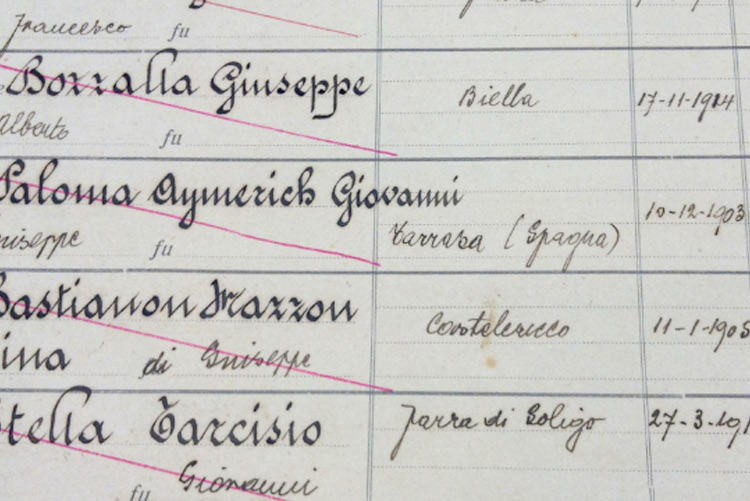 Francesco fu
Bozzalla Giuseppe Biella 17-11-1914
Alberto fu
Paloma Aymerich Giovanni 10-12-1903
Giuseppe fu Tarrasa (Spagna)
Bastianon Mazzon 11-1-1905
ina di Giuseppe
Stella Tarcisio Farra di Soligo 27-3-191
fu Giovanni